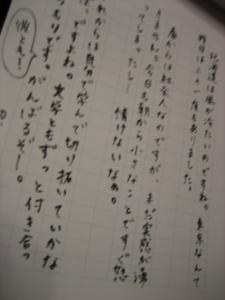 北海道は風が冷たいのですね。東京なんて
昨日は二十一度もありました。
春からは社会人なのですが、まだ実感が湧
きません。今日も朝から小さなことですぐ怒
ってしまったし…
情けないなぁ。
これからは自力で学んで切り抜いていかな
ですよね。
もりです。がんばるぞー。
文学ともずっと付き合っ
俳とも!